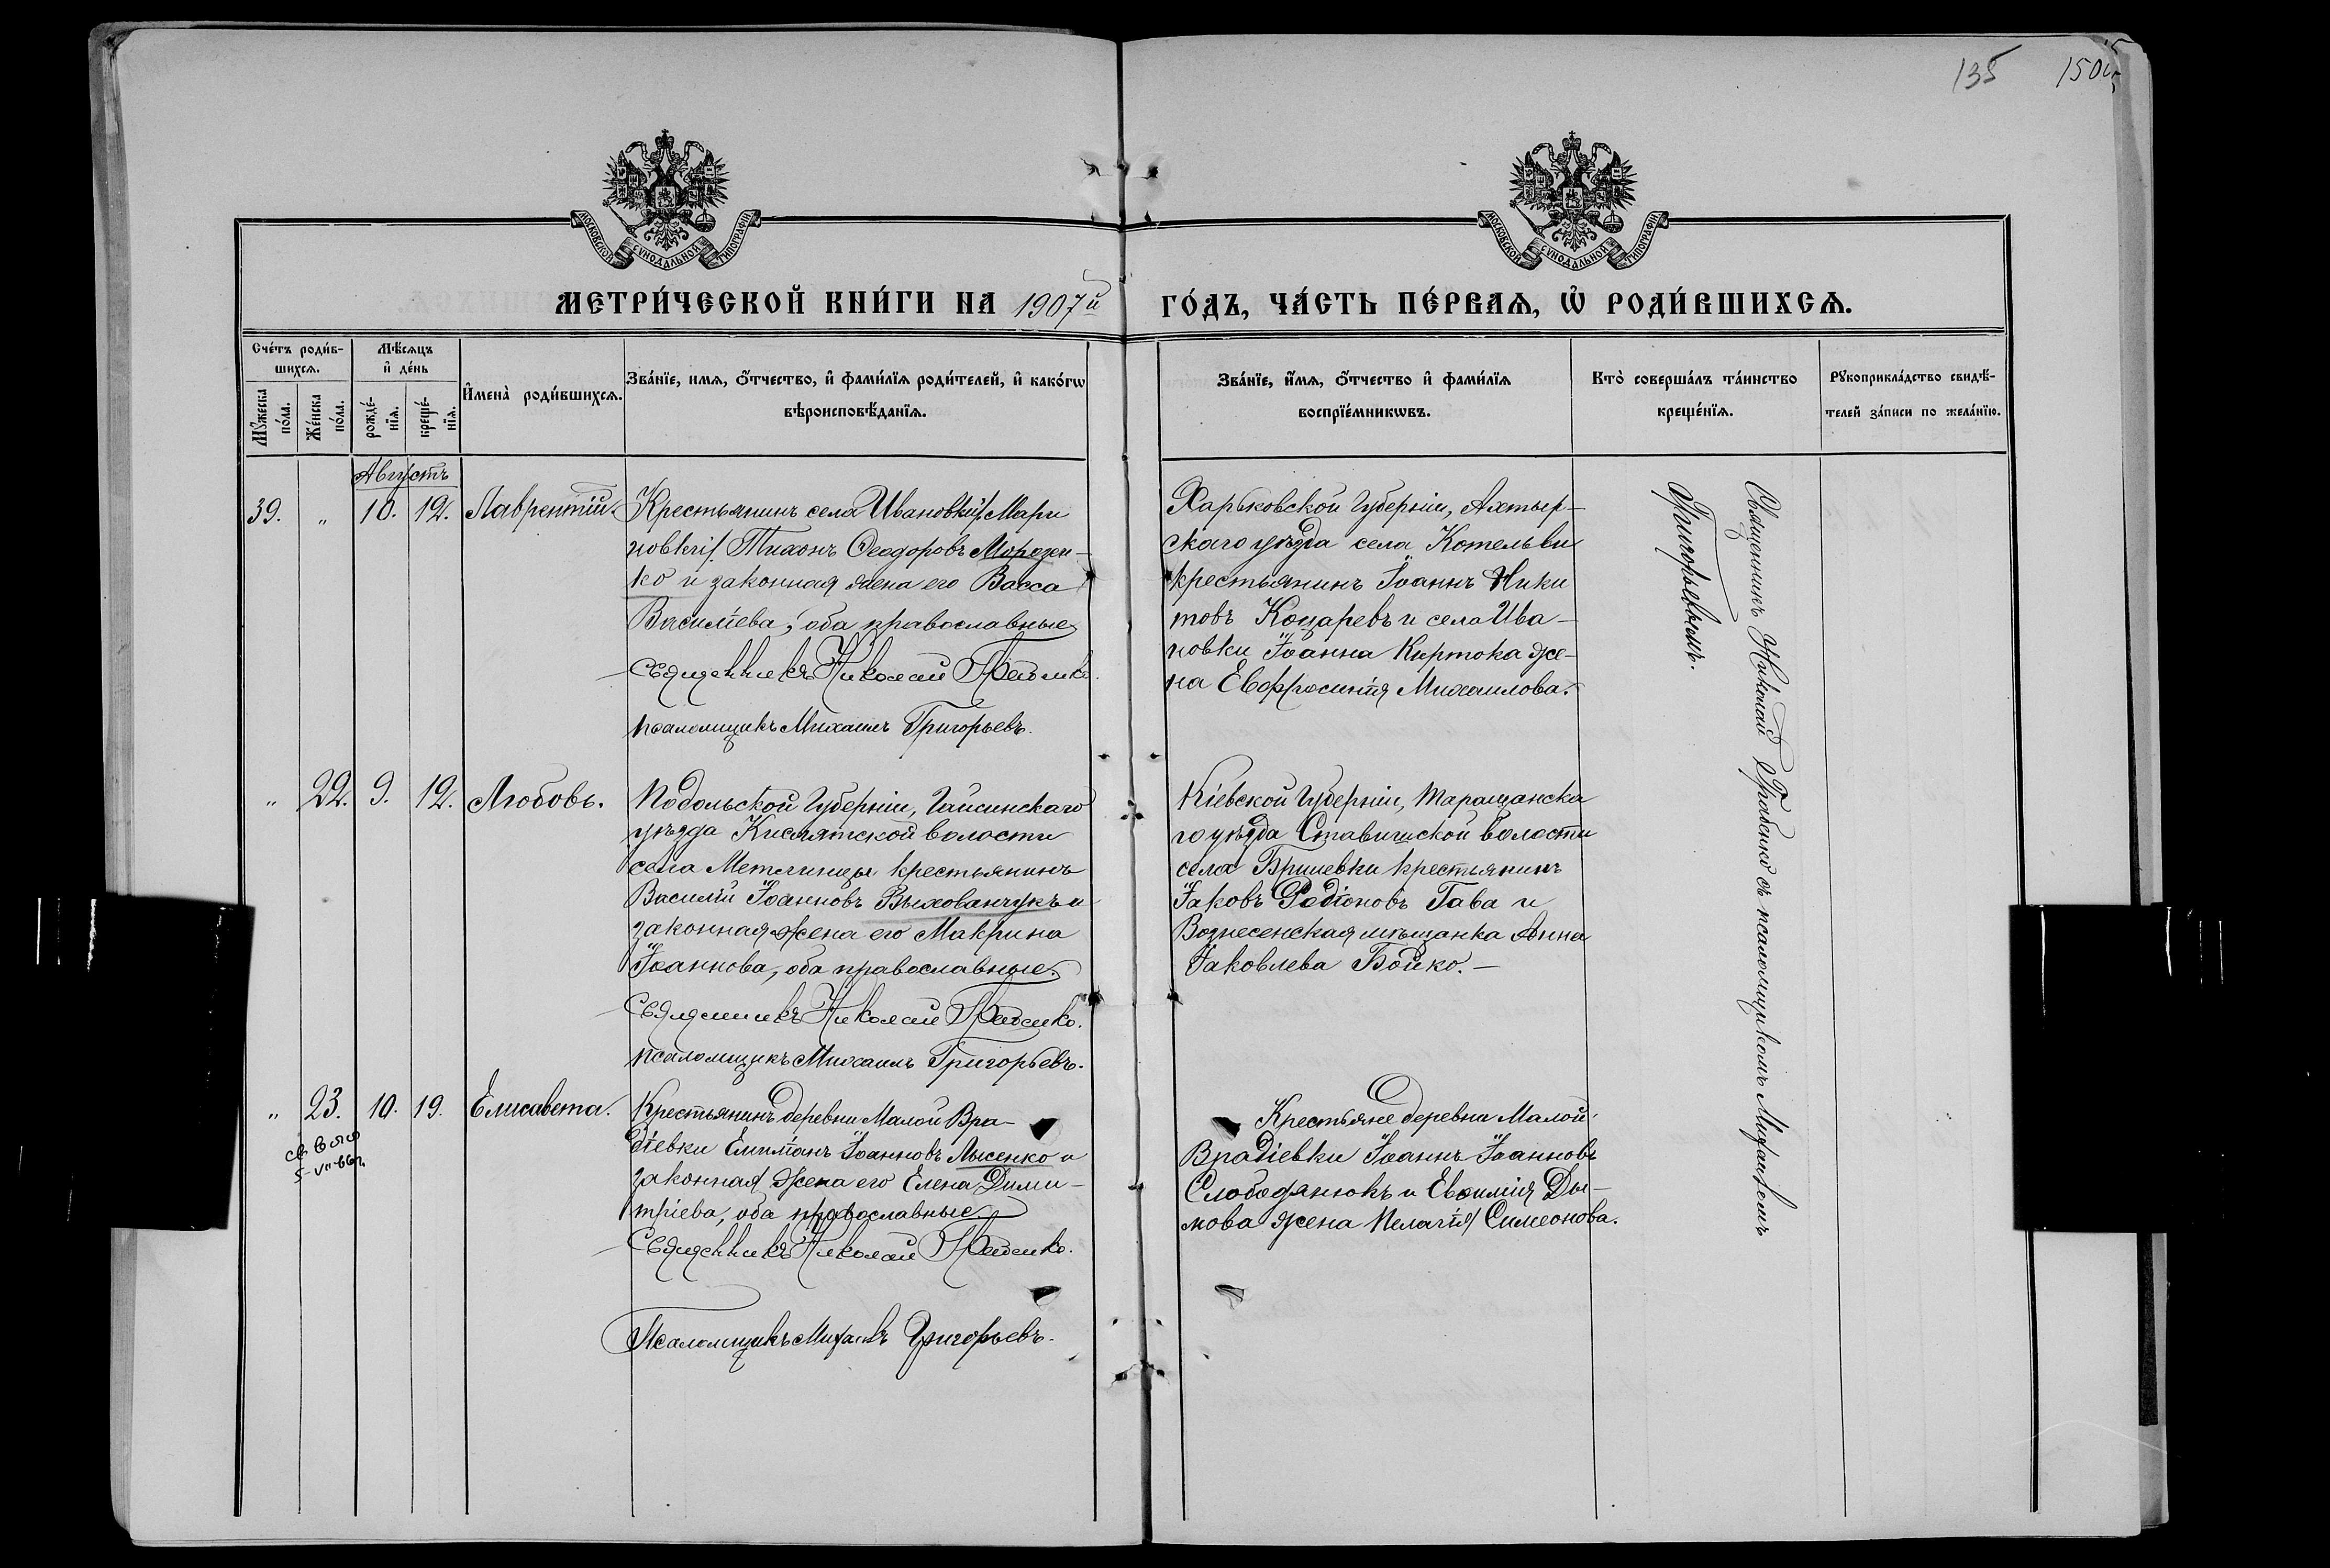 135 150
МОСКОВСКОЙ СѴНОДАЛЬНОЙ ТИПОГРАФІИ
МОСКОВСКОЙ СѴНОДАЛЬНОЙ ТИПОГРАФІИ
МЕТРИ́ЧЕСКОЙ КНИ́ГИ НА 1907й ГО́ДЪ, ЧА́СТЬ ПЕ́РВАѦ, Ѡ҆ РОДИ́ВШИХСѦ.
Сче́тъ роди́в-
шихсѧ.
Мꙋ́жеска
по́ла.
Же́нска
по́ла.
Мѣ́сѧцъ
и҆ де́нь
рожде́-
нїѧ.
креще́-
нїѧ.
И҆мена̀ роди́вшихсѧ.
Зва́нїе, имѧ, ѻ҆́тчество, и҆ фами́лїѧ роди́телей, и҆ како́гѡ
вѣроисповѣ́данїѧ.
Зва́нїе, и҆́мѧ, ѻ҆́тчество и҆ фами́лїѧ
воспрїе́мникѡвъ.
Кто̀ соверша́лъ та́инство
креще́нїѧ.
Рꙋкоприкла́дство свидѣ́-
телей за́писи по жела́нїю.
Августъ
39. " 10. 12. Лаврентій.
Крестьянинъ села Ивановки/Мари
новки/. Тихонъ Ѳеодоровъ Морозен-
ко и законная жена его Васса
Василіева, оба православные
Священникъ Николай
псаломщикъ Михаилъ Григорьевъ.
Харьковской Губерніи, Ахтыр-
скаго уѣзда села Котельвы
крестьянинъ Іоаннъ Ники
товъ Коцаревъ и села Ива-
новки Іоанна Киртока же-
на Евфросинія Михаилова.
Священникъ Николай съ псаломщикомъ Михаиломъ
Григорьевымъ.
" 22. 9. 12. Любовь.
Подольской Губерніи, Гайсинскаго
уѣзда Кислятской волости
села Метлинцы крестьянинъ
Василій Іоанновъ Выхованчукъ и
законная жена его Макрина
Іоаннова, оба православные.
Священникъ Николай
псаломщикъ Михаилъ Григорьевъ.
Кіевской Губерніи, Таращанска
го уѣзда Ставищской волости
села Бришевки крестьянинъ
Іаковъ Родіоновъ Гава и
Вознесенская мѣщанка Анна
Іаковлева Бойко.-
" 23. 10. 19. Елисавета.
5-VII-66г.
Крестьянинъ деревни Малой Вра-
діевки Емиліанъ Іоанновъ Лысенко и
законная жена его Елена Дими-
тріева, оба православные
Священникъ Николай
Псаломщикъ Михаилъ Григорьевъ.
Крестьяне деревни Малой
Врадіевки Іоаннъ Іоанновъ
Слободянюкъ и Евфимія Ды-
мова жена Пелагія/ Симеонова.